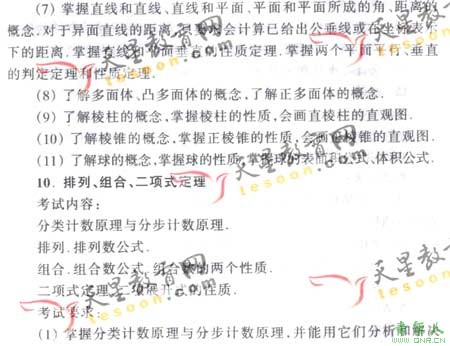 (7) 掌握直线和直线、直线和平面、平面和平面所成的角、距离的
概念.对于异面直线的距离,只要求会计算已给出公垂线或在坐标表示
下的距离.掌握直线和平面垂直的性质定理.掌握两个平面平行、垂直
的判定定理和性质定理.
(8) 了解多面体、凸多面体的概念,了解正多面体的概念.
(9) 了解棱柱的概念,掌握棱柱的性质,会画直棱柱的直观图.
(10) 了解棱锥的概念,掌握正棱锥的性质,会画正棱锥的直观图.
(11) 了解球的概念,掌握球的性质,掌握球的表面积公式、体积公式.
10. 排列、组合、二项式定理
考试内容:
分类计数原理与分步计数原理.
排列.排列数公式.
组合.组合数公式.组合数的两个性质.
二项式定理.二项展开式的性质.
考试要求:
(1) 掌握分类计数原理与分步计数原理,并能用它们分析和解决
天星教育网
tesoon.com
天星教育网
tesoon.com
天星教
tesoon
天星教
tesoon
天星教
tesoon
青年人
WWW.QNR.CN